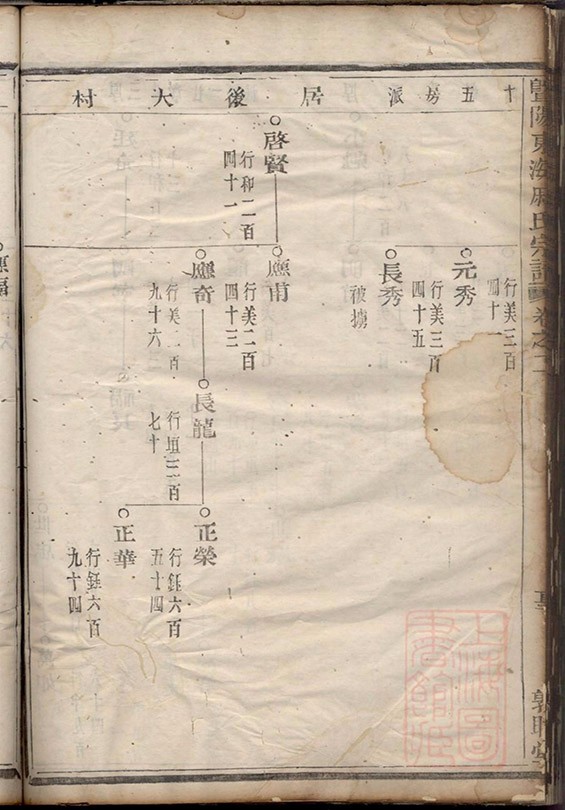 暨陽東海戚氏宗譜
卷之二
十五房派居後大村
行美三百
四十
元秀
行美三百
四十五
長秀
被擄
啓賢
行和二百
四十一
應甫
行美二百
四十三
應奇
行美二百
九十六
長龍
行垣三百
七十
正榮
行鈺六百
五十四
正華
行鈺六百
九十四
應福
上海圖書館藏